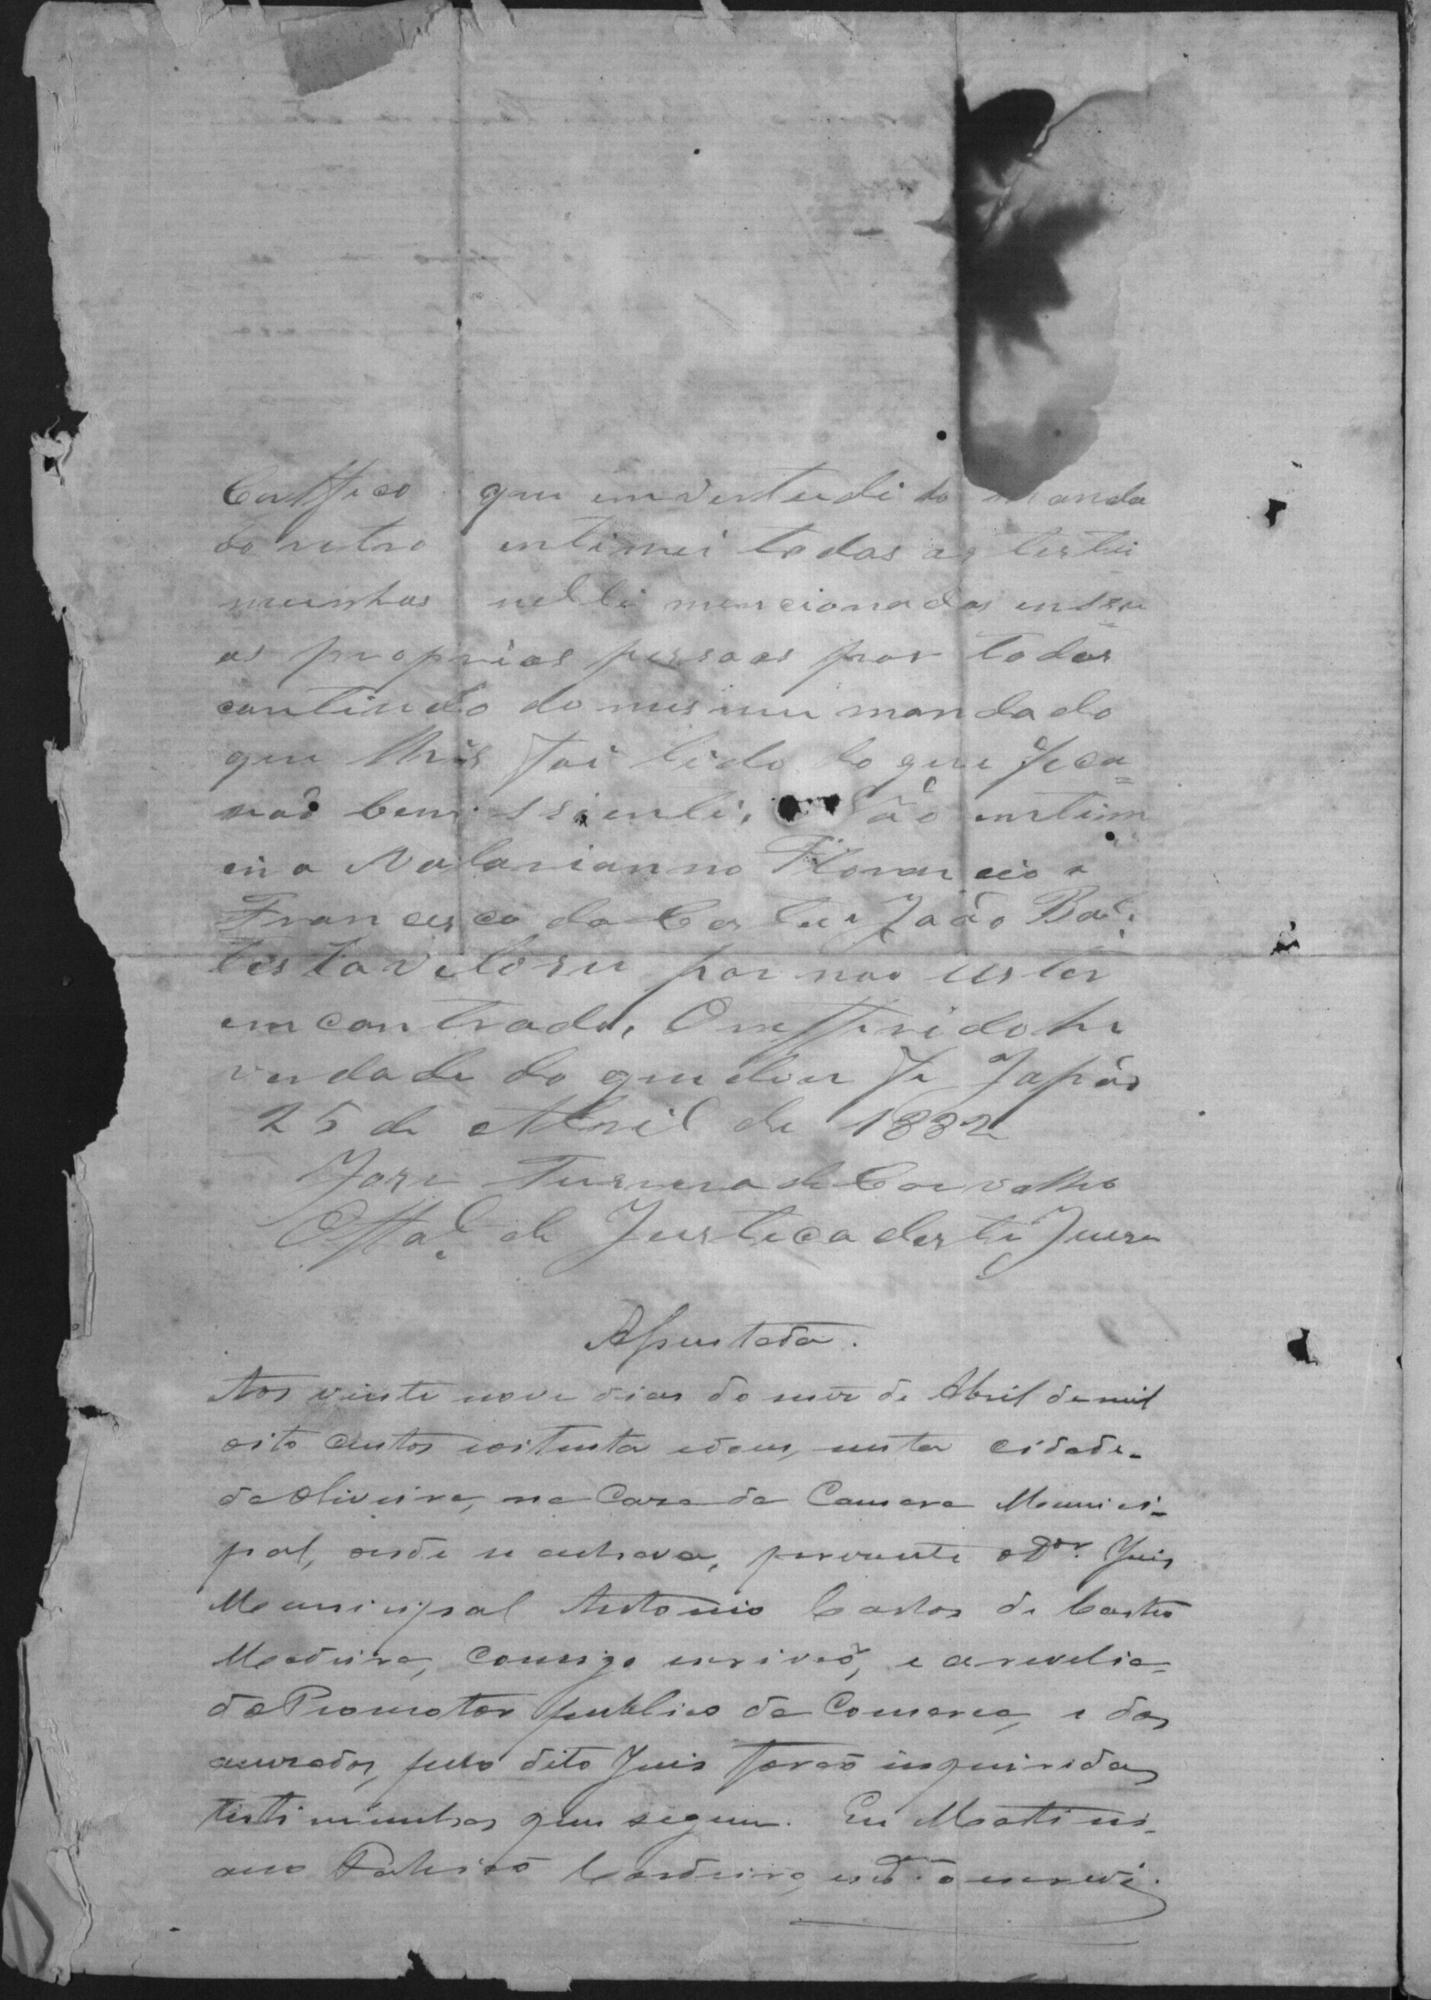 Certifico que em vertudi do manda
do retro entimei todas as testi
munhas nelli mencionadas em sua
as proprias pessoas por todos
contiudo do mesmu mandado
que lhis foi lido do que fica=
rão bem ssienti, Não entim
ei a Valarianno Florencio a
Francisco da Costa e João Bat
tista veloso por nao estar
emcontrado, O refferido he
verdade do que dou fe Japão
25 de Abril de 1882
José Ferreira de Carvalho
Offal. de Justica desti Juiso
Assentada.
Aos vinte nove dias do mez de Abril de mil
oito centos e oitenta e dous, nesta cidade
de Oliveira, na Casa da Camara Munici-
pal, onde se achava, perante o Dor. Juis
Municipal Antonio Carlos de Castro
Madeira, comigo escrivão, e a revelia
do Promotor publico da Comarca, e dos
acusados, pelo dito Juis forão inquiridas
testimunhas que seguem. Eu Martini-
ano Cordeiro, o escrevi.